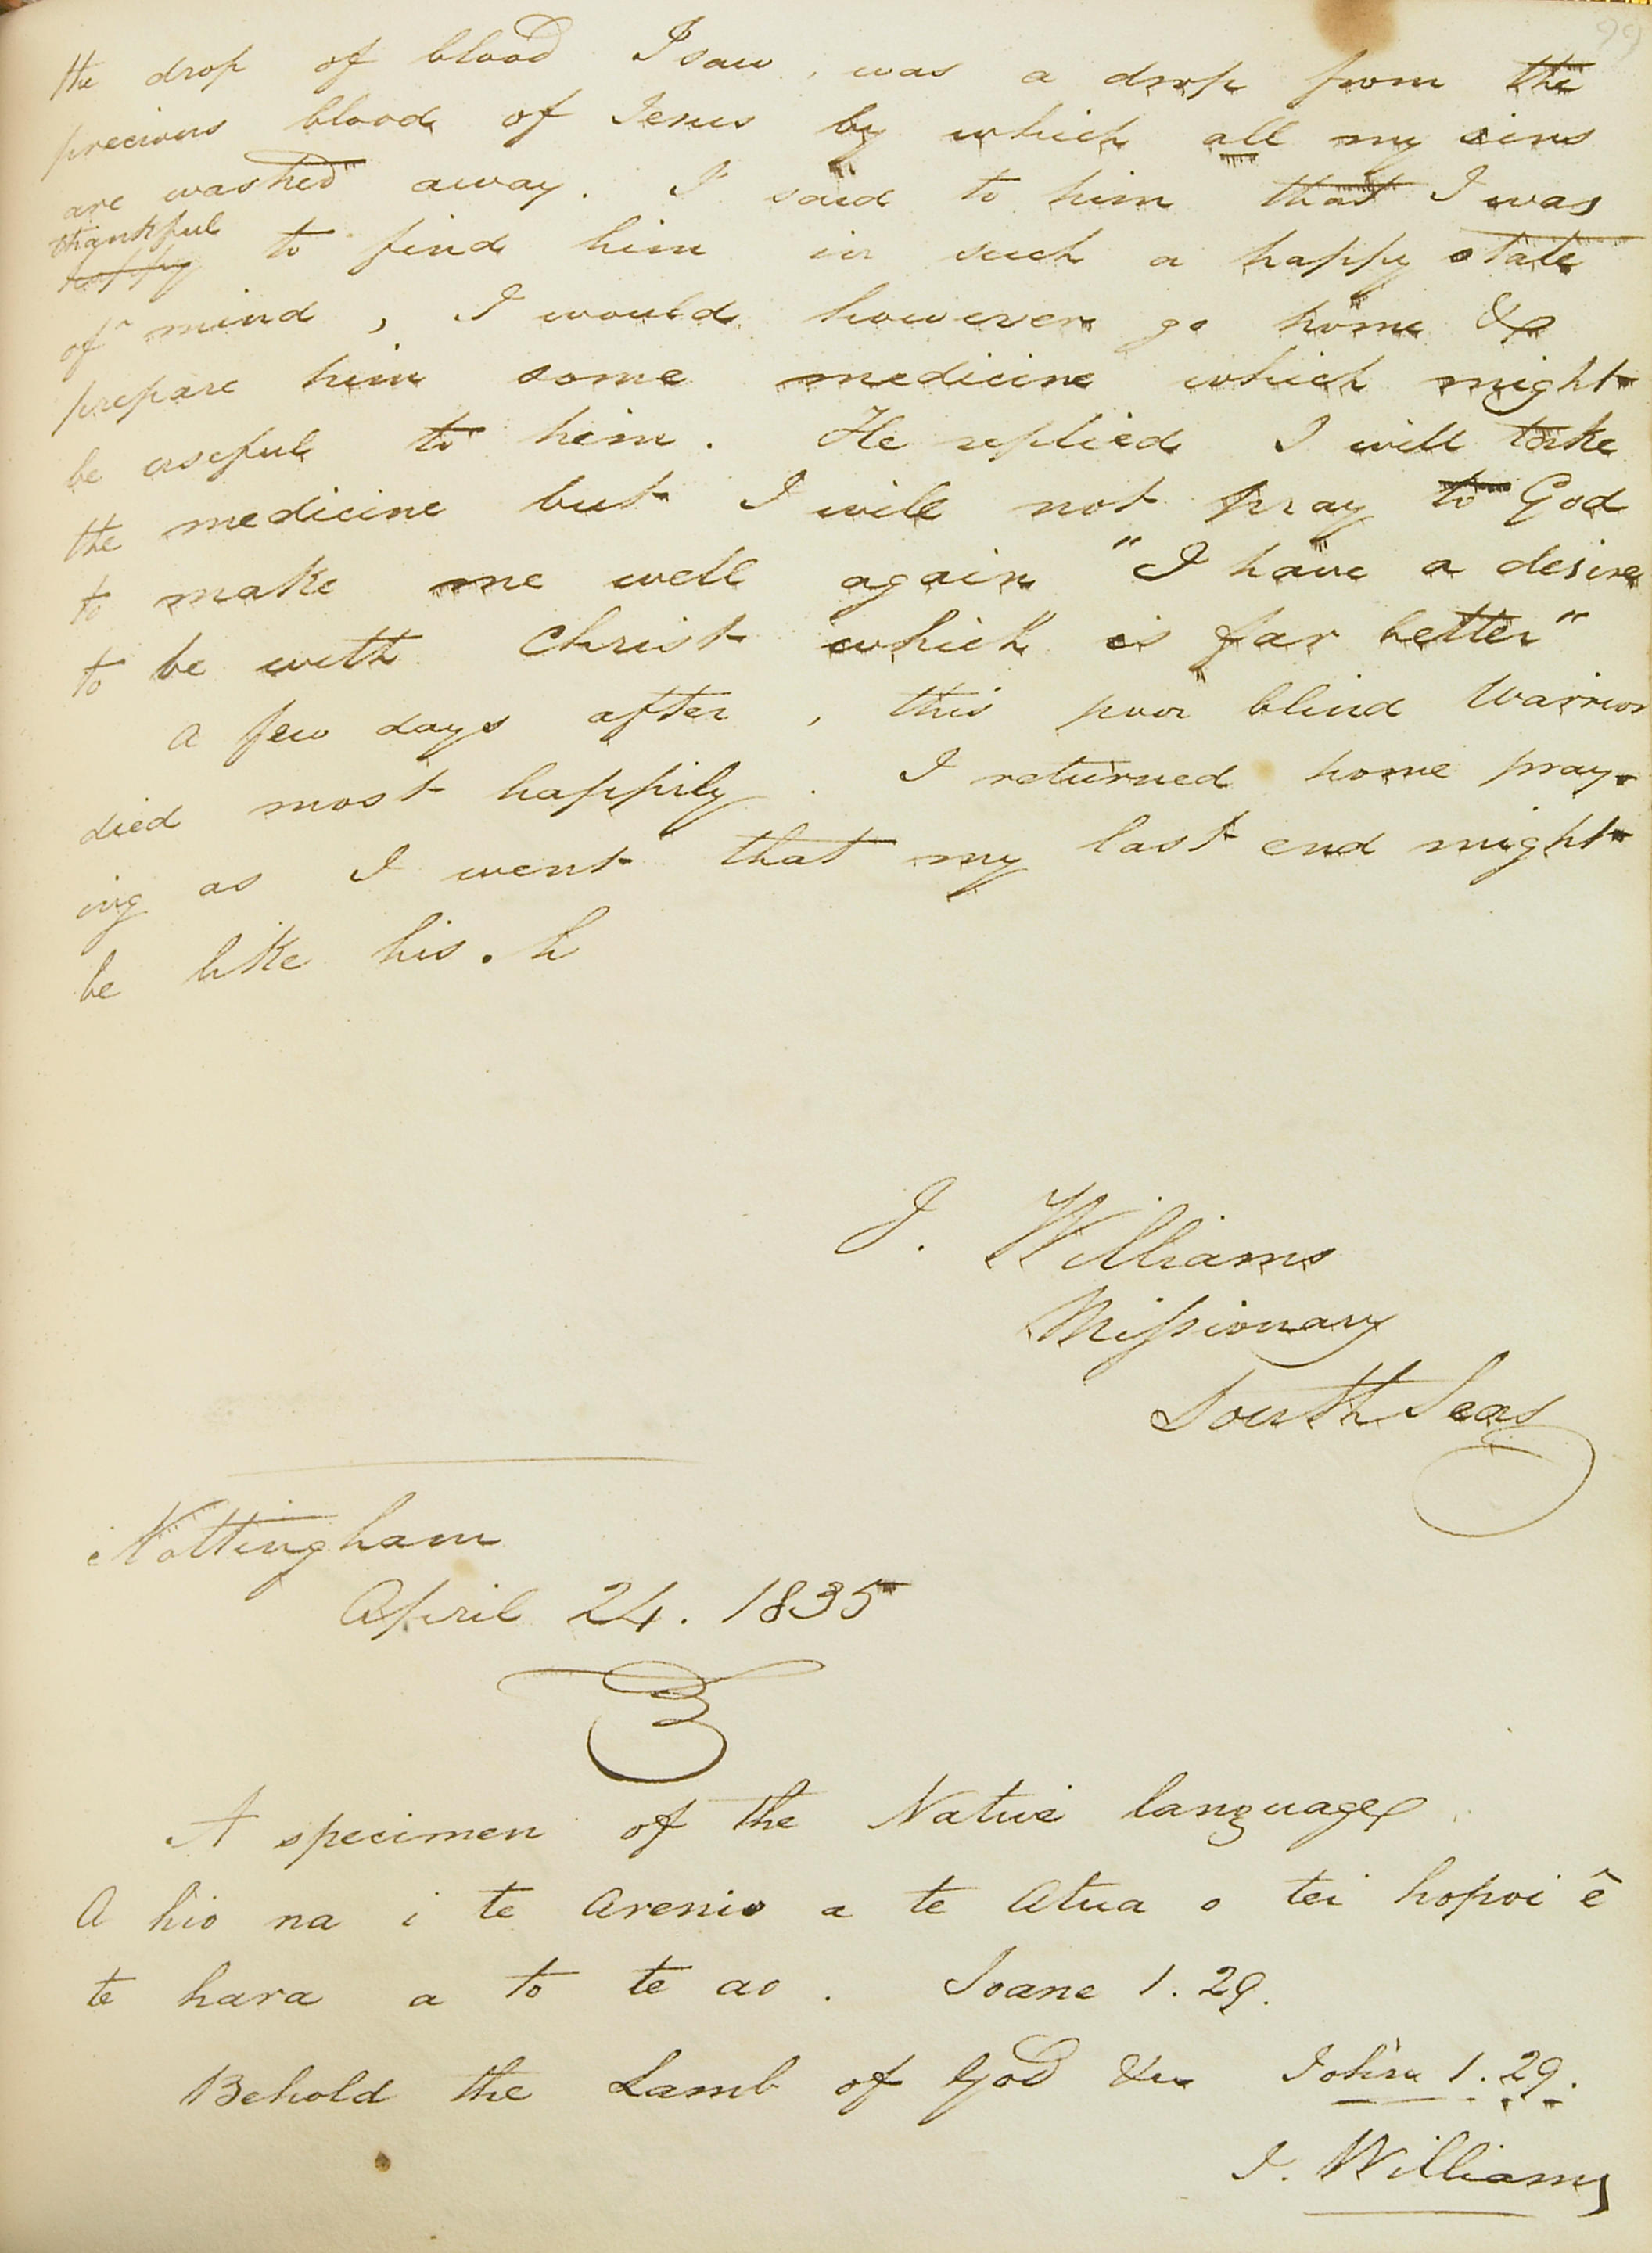 99
the drop of blood I saw, was a drop from the
precious blood of Jesus by which all my sins
are washed away. I said to him that I was
thankful
happy to find him in such a happy state
of mind, I would however go home &
prepare him some medicine which might
be useful to him. He replied I will take
the medicine but I will not pray to God
to make me well again "I have a desire
to be with Christ which is far better"
A few days after, this poor blind Warrior
died most happily. I returned home pray-
ing as I went that my last end might
be like his. h
J. Williams
Missionary
South Seas
Nottingham
April 24. 1835
A specimen of the Native language
A hio na i te Arenio a te Atua o tei hopoi ê
te hara a to te ao. Ioane 1.29.
Behold the Lamb of God &c John 1.29.
J. Williams